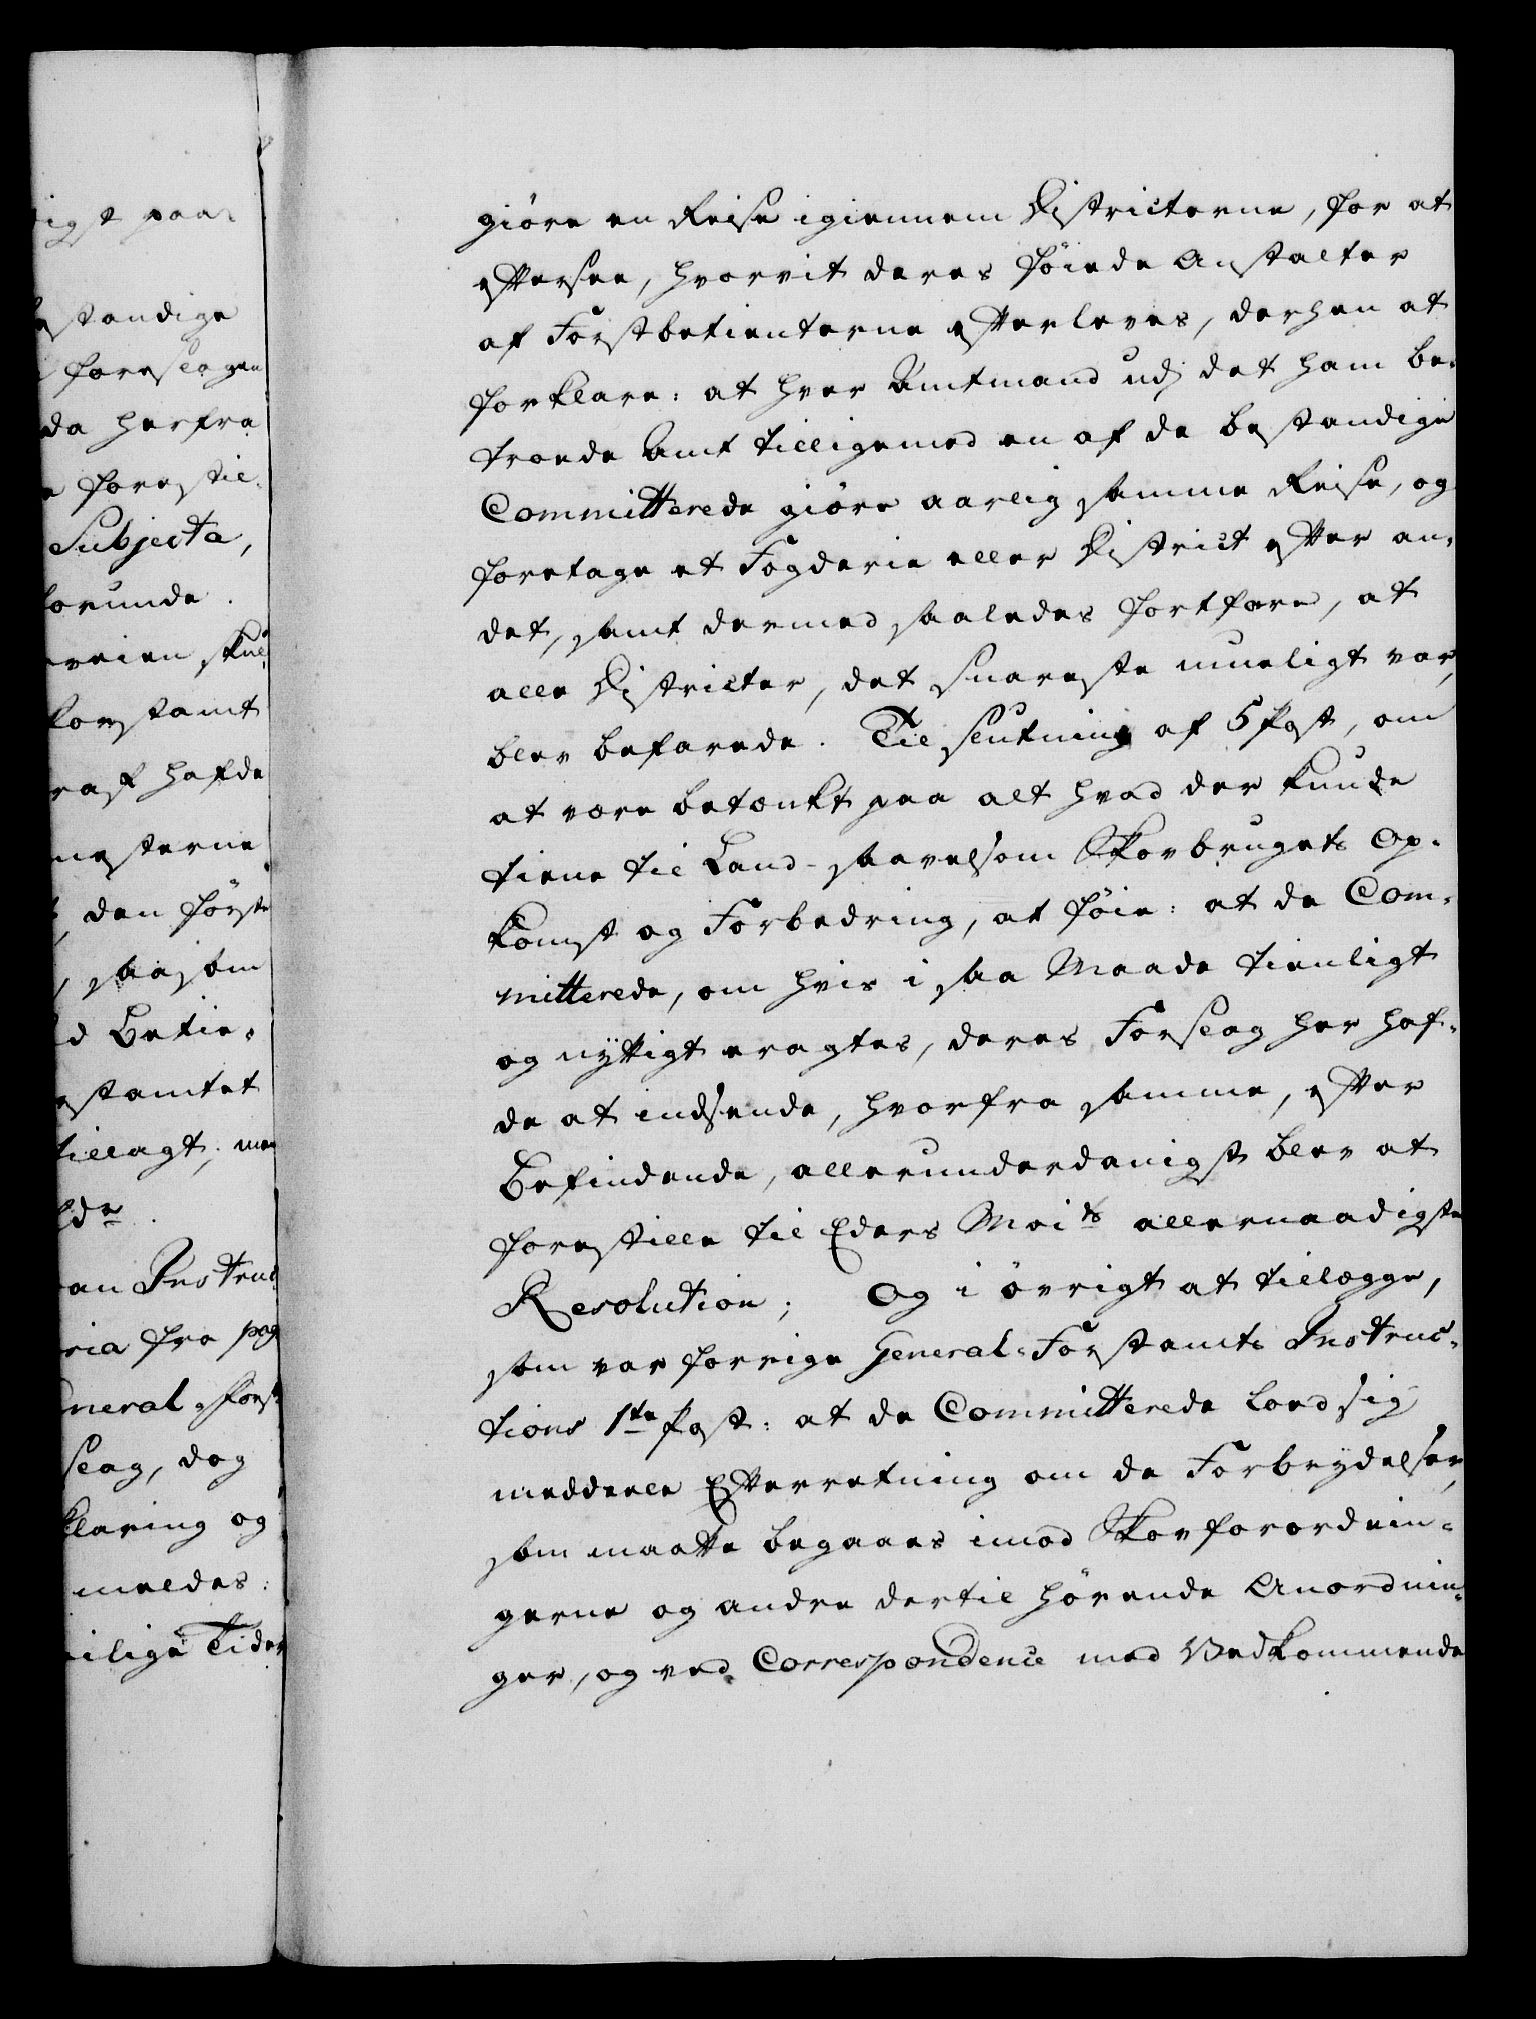 igst paa
standige
foreslagen
da herfra
e forestil-
Subjecta,
forunde.
veien skul-
Forstamt
raf hafde
mesterne
den første
saasom
d Betie-
stamtet
tillagt; men
lde
an Instruc-
ria fra pag
neral-Forst-
slag, dog
klaring og
meldes:
ilige Tider
giøre en Reise igiennem Districterne, for at
eftersee, hvorvit deres føiede Anstalter
af Forstbetienterne efterleves, derhen at
forklare: at hver Amtmand udj det ham be-
troede Amt tilligemed en af de bestandige
Committerede giøre aarlig samme Reise, og
foretage et Fogderie eller District efter an-
det, samt dermed saaledes fortfare, at
alle Districter, det snareste mueligt var,
blev befarede. Til slutning af 5 Post, om
at være betænkt paa alt hvad der kunde
tiene til Land- saavelsom Skovbrugets Op-
komst og Forbedring, at føie: at de Com-
mitterede, om hvis i saa Maade tienligt
og nyttigt eragtes, deres Forslag her haf-
de at indsende, hvorfra samme, efter
Befindende, allerunderdanigst blev at
forestille til Eders Maits allernaadigste
Resolution; Og i øvrigt at tillægge,
som var forrige General-Forstamts Instruc-
tions 1te Post: at de Committerede loed sig
meddeele Efterretning om de Forbrydelser,
som maatte begaaes imod Skovforordnin-
gerne og andre dertil hørende Anordnin-
ger, og ved Correspondence med Vedkommende